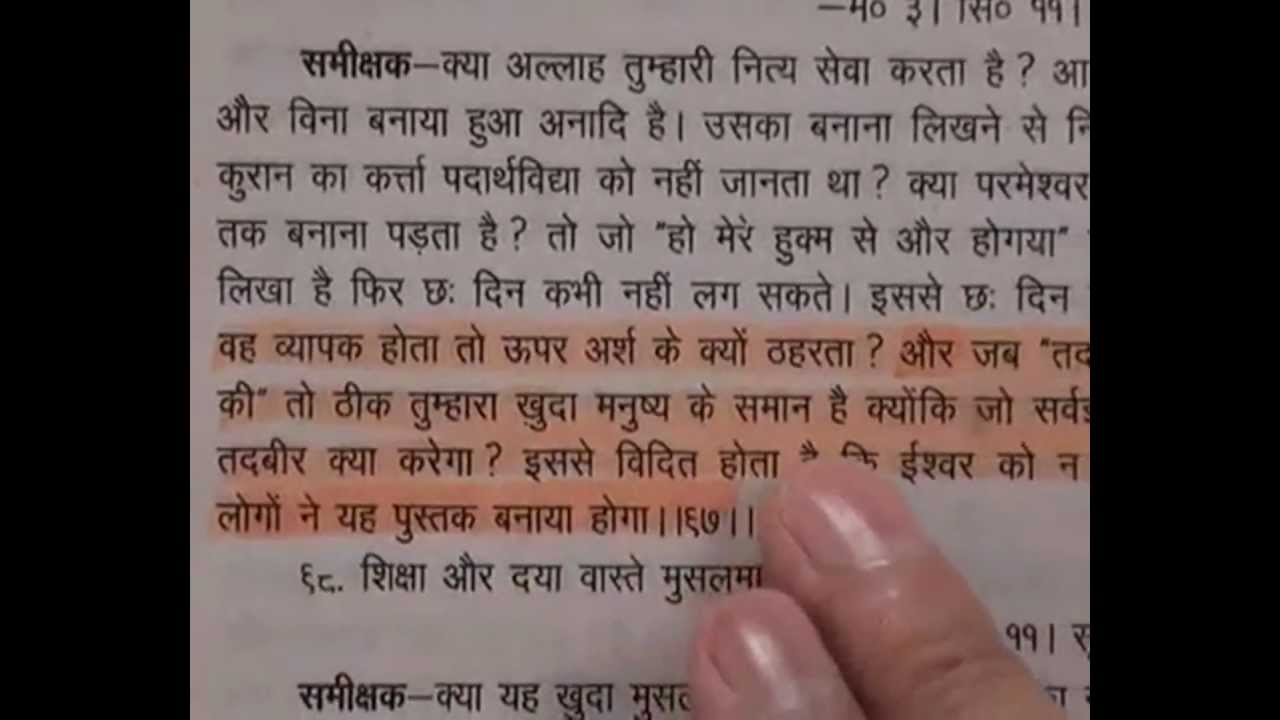 —मं० ३। सि० ११।
समीक्षक—क्या अल्लाह तुम्हारी नित्य सेवा करता है? आ
और विना बनाया हुआ अनादि है। उसका बनाना लिखने से
कुरान का कर्त्ता पदार्थविद्या को नहीं जानता था? क्या परमेश्वर
तक बनाना पड़ता है? तो जो "हो मेरे हुक्म से और होगया"
लिखा है फिर छः दिन कभी नहीं लग सकते। इससे छः दिन
वह व्यापक होता तो ऊपर अर्श के क्यों ठहरता? और जब "तद
की" तो ठीक तुम्हारा ख़ुदा मनुष्य के समान है क्योंकि जो
तदबीर क्या करेगा? इससे विदित होता है कि ईश्वर को न
लोगों ने यह पुस्तक बनाया होगा।।६७।।
६८. शिक्षा और दया वास्ते मुसलमा
११।
समीक्षक—क्या यह ख़ुदा मुसल